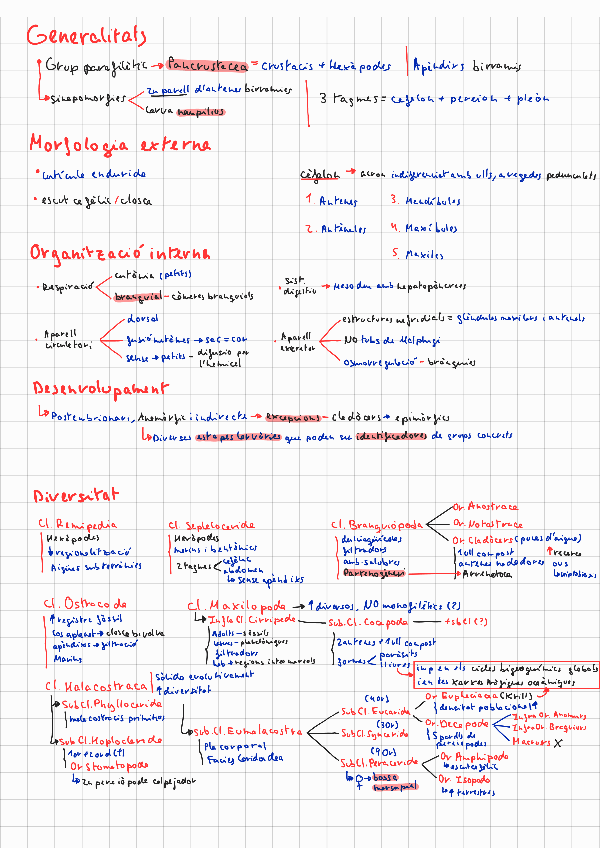 Generalitats
Grup parafilètic → Pancrustacea = crustacis + Hexàpodes | Apèndixs birramis
Sinapomorfies
2n parell d'antenes birrames
Larva nauplius
3 tagmes = cefalon + pereion + pleon
Morfologia externa
• cutícula endurida
• escut cefàlic / closca
Cefalon → acron indiferenciat amb ulls, a vegades pedunculats
1 Antenes
2. Antènules
3. Mandíbules
4. Maxíl·lules
5. Maxiles
Organització interna
• Respiració
cutània (petits)
branquial - càmeres branquials
• Sist. digestiu → Meso den amb hepatopàncrees
• Aparell circulatori
dorsal
fusió metàmers → sac = cor
sense → petits - difusió per l'hemocel
• Aparell excretor
estructures nefridials = glàndules maxilars i antenals
NO tubs de Malpighi
osmorregulació - brànquies
Desenvolupament
Postembrionari, Anamòrfic i indirecte → excepcions - Cladòcers → epimòrfics
Diverses etapes larvàries que poden ser identificadores de grups concrets
Diversitat
Cl. Remipedia
Heràpodes
↓ regionalització
Aigües subterrànies
Cl. Cephalocarida
Heràpodes
marins i bentònics
2 tagmes
cefàlic
abdomen
↳ sense apèndixs
Cl. Branquiòpoda
dulciaqüícoles
filtradors
amb. salobres
Partenogènesi
Or. Anostraca
Or. Notostraca
Or. Cladòcers (puces d'aigua)
1 ull compost
antenes nedadores
Arrhenotoca
↑ reserva
ous
Cl. Ostracoda
↑ registre fòssil
Cos aplanat → closca bivalva
apèndixs → filtració
Marins
Cl. Maxilopoda → ↑ diversos, NO monofilètic (?)
Infra Cl. Cirripede
Adults - sèssils
Larves - planctòniques
filtradors
Hab → regions intermareals
Sub. Cl. Copepoda → tsbCl (?)
2 antenes + 1 ull compost
formes
paràsits
lliures
imp en els cicles biogeoquímics globals
i en les xarxes tròfiques oceàniques
Cl. Malacostraca
sòlida evolutivament
↑ diversitat
Sub Cl. Phyllocarida
malacostracis primitius
Sub Cl. Hoplocarida
Or Stomatopoda
↳ 2n pereiòpode colpejador
Sub. Cl. Eumalacostra
Pla corporal
Facies Caridoidea
(4 or)
SubCl. Eucarida
(3 or)
SubCl. Syncarida
(9 Or)
SubCl. Peracarida
↳ ♀ → bossa marsupial
Or Euphasiacea (Krill)
densitat poblacional ↑
Or. Decapoda
5 parells de pereiopodes
Infra Or. Anomurs
Infra Or Braquiurs
Macrurs X
Or Amphipoda
Or. Isopoda
↳ ↑ terrestres